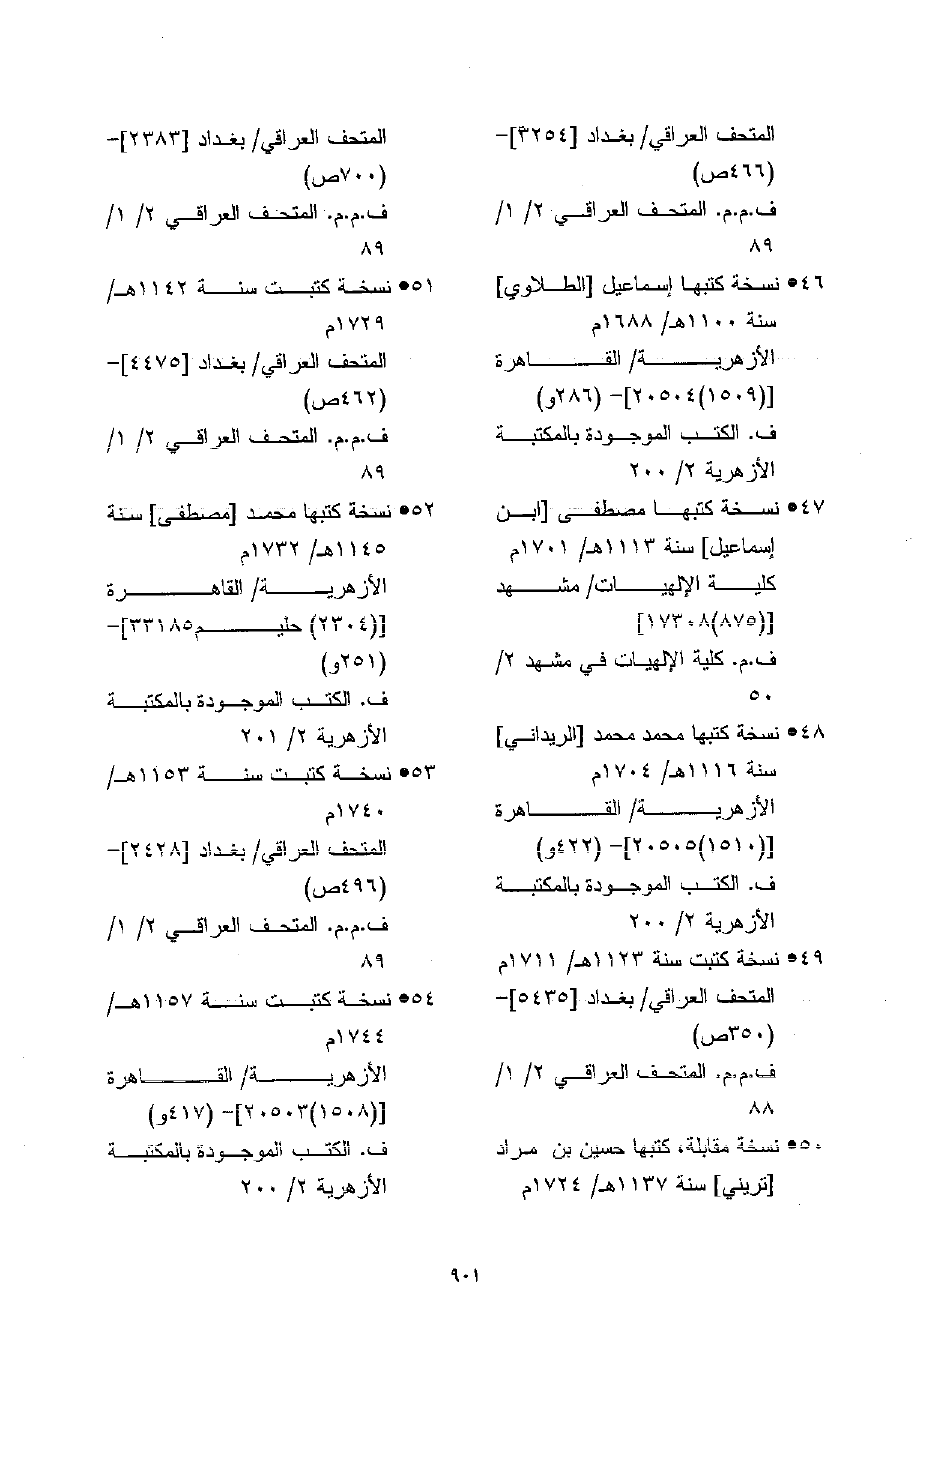 المتحف العراقي/ بغداد [٣٢٥٤]-
(٤٦٦ص)
ف.م.م. المتحف العراقي ٢/ ١/
٨٩
٤٦• نسخة كتبها إسماعيل [الطلاوي]
سنة ١١٠٠هـ/ ١٦٨٨م
الأزهرية/ القاهرة
[(١٥٠٩)٢٠٥٠٤]- (٢٨٦و)
ف. الكتب الموجودة بالمكتبة
الأزهرية ٢/ ٢٠٠
٤٧• نسخة كتبها مصطفى [ابن
إسماعيل] سنة ١١١٣هـ/ ١٧٠١م
كلية الإلهيات/ مشهد
[(٨٧٥)١٧٣٠٨]
ف.م. كلية الإلهيات في مشهد ٢/
٥٠
٤٨• نسخة كتبها محمد محمد [الريداني]
سنة ١١١٦هـ/ ١٧٠٤م
الأزهرية/ القاهرة
[(١٥١٠)٢٠٥٠٥]- (٤٢٢و)
ف. الكتب الموجودة بالمكتبة
الأزهرية ٢/ ٢٠٠
٤٩• نسخة كتبت سنة ١١٢٣هـ/ ١٧١١م
المتحف العراقي/ بغداد [٥٤٣٥]-
(٣٥٠ص)
ف.م.م. المتحف العراقي ٢/ ١/
٨٨
٥٠• نسخة مقابلة، كتبها حسين بن مراد
[تريني] سنة ١١٣٧هـ/ ١٧٢٤م
المتحف العراقي/ بغداد [٢٣٨٣]-
(٧٠٠ص)
ف.م.م. المتحف العراقي ٢/ ١/
٨٩
٥١• نسخة كتبت سنة ١١٤٢هـ/
١٧٢٩م
المتحف العراقي/ بغداد [٤٤٧٥]-
(٤٦٢ص)
ف.م.م. المتحف العراقي ٢/ ١/
٨٩
٥٢• نسخة كتبها محمد [مصطفى] سنة
١١٤٥هـ/ ١٧٣٢م
الأزهرية/ القاهرة
[(٢٣٠٤) حليم٣٣١٨٥]-
(٢٥١و)
ف. الكتب الموجودة بالمكتبة
الأزهرية ٢/ ٢٠١
٥٣• نسخة كتبت سنة ١١٥٣هـ/
١٧٤٠م
المتحف العراقي/ بغداد [٢٤٢٨]-
(٤٩٦ص)
ف.م.م. المتحف العراقي ٢/ ١/
٨٩
٥٤• نسخة كتبت سنة ١١٥٧هـ/
١٧٤٤م
الأزهرية/ القاهرة
[(١٥٠٨)٢٠٥٠٣]- (٤١٧و)
ف. الكتب الموجودة بالمكتبة
الأزهرية ٢/ ٢٠٠
٩٠١